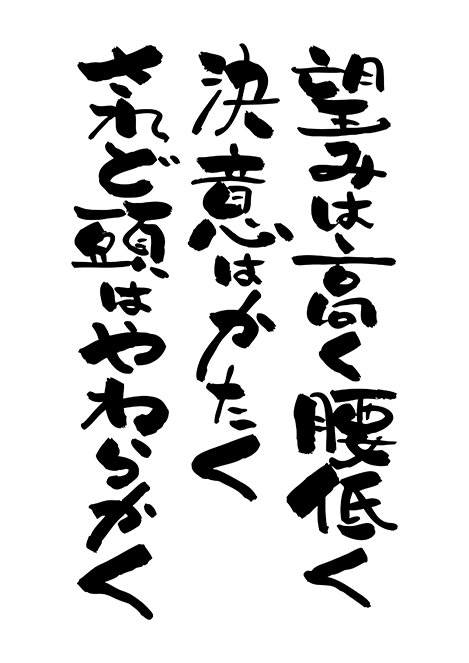 望みは高く腰低く
決意はかたく
されど頭はやわらかく